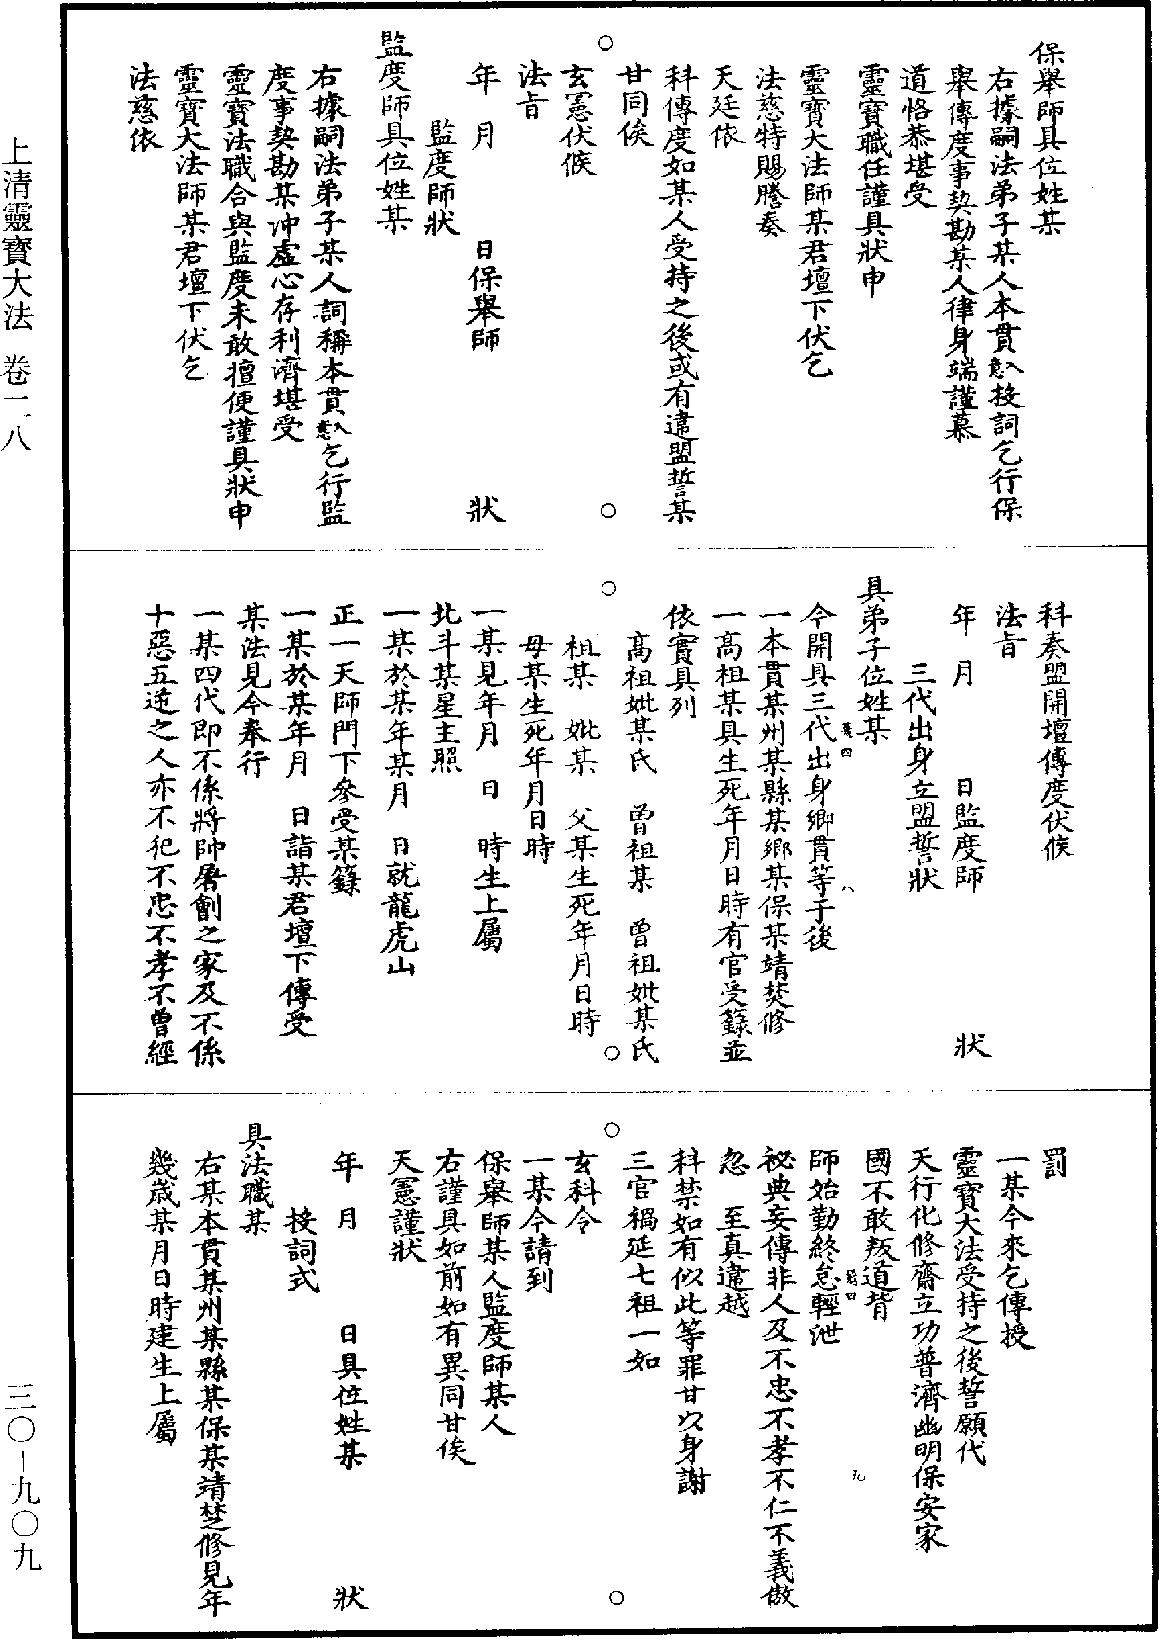 保舉師具位姓某
右據嗣法弟子某人本貫云云投詞乞行保
舉傳度事契勘某人律身端謹慕
道恪恭堪受
靈寶職任謹具狀申
靈寶大法師某君壇下伏乞
法慈特賜謄奏
天廷依
科傳度如某人受持之後或有違盟誓某
甘同俟
玄憲伏候
法旨
年　月　　　日保舉師　　　　　狀
監度師狀
監度師具位姓某
右據嗣法弟子某人詞稱本貫云云乞行監
度事契勘某沖虛心存利濟堪受
靈寶法職合與監度未敢擅便謹具狀申
靈寶大法師某君壇下伏乞
法慈依
科奏盟開壇傳度伏候
法旨
年　月　　　日監度師　　　　　狀
三代出身立盟誓狀
具弟子位姓某
今開具三代出身鄉貫等于後
一本貫某州某縣某鄉某保某靖焚修
一高祖某具生死年月日時有官受籙並
依實具列
高祖妣某氏　曾祖某　曾祖妣某氏
祖某　妣某　父某生死年月日時
母某生死年月日時
一某見年月　日　時生上屬
北斗某星主照
一某於某年某月　日就龍虎山
正一天師門下參受某籙
一某於某年月　日詣某君壇下傳受
某法見今奉行
一某四代即不係將帥屠劊之家及不係
十惡五逆之人亦不犯不忠不孝不曾經
罰
一某今來乞傳授
靈寶大法受持之後誓願代
天行化修齋立功普濟幽明保安家
國不敢叛道背
師始勤終怠輕泄
祕典妄傳非人及不忠不孝不仁不義傲
忽　至真違越
科禁如有似此等罪甘以身謝
三官禍延七祖一如
玄科令
一某今請到
保舉師某人監度師某人
右謹具如前如有異同甘俟
天憲謹狀
年　月　　　日具位姓某　　　　　狀
投詞式
具法職某
右某本貫某州某縣某保某靖焚修見年
幾歲某月日時建生上屬
上清靈寶大法　卷二八
三〇－九〇九